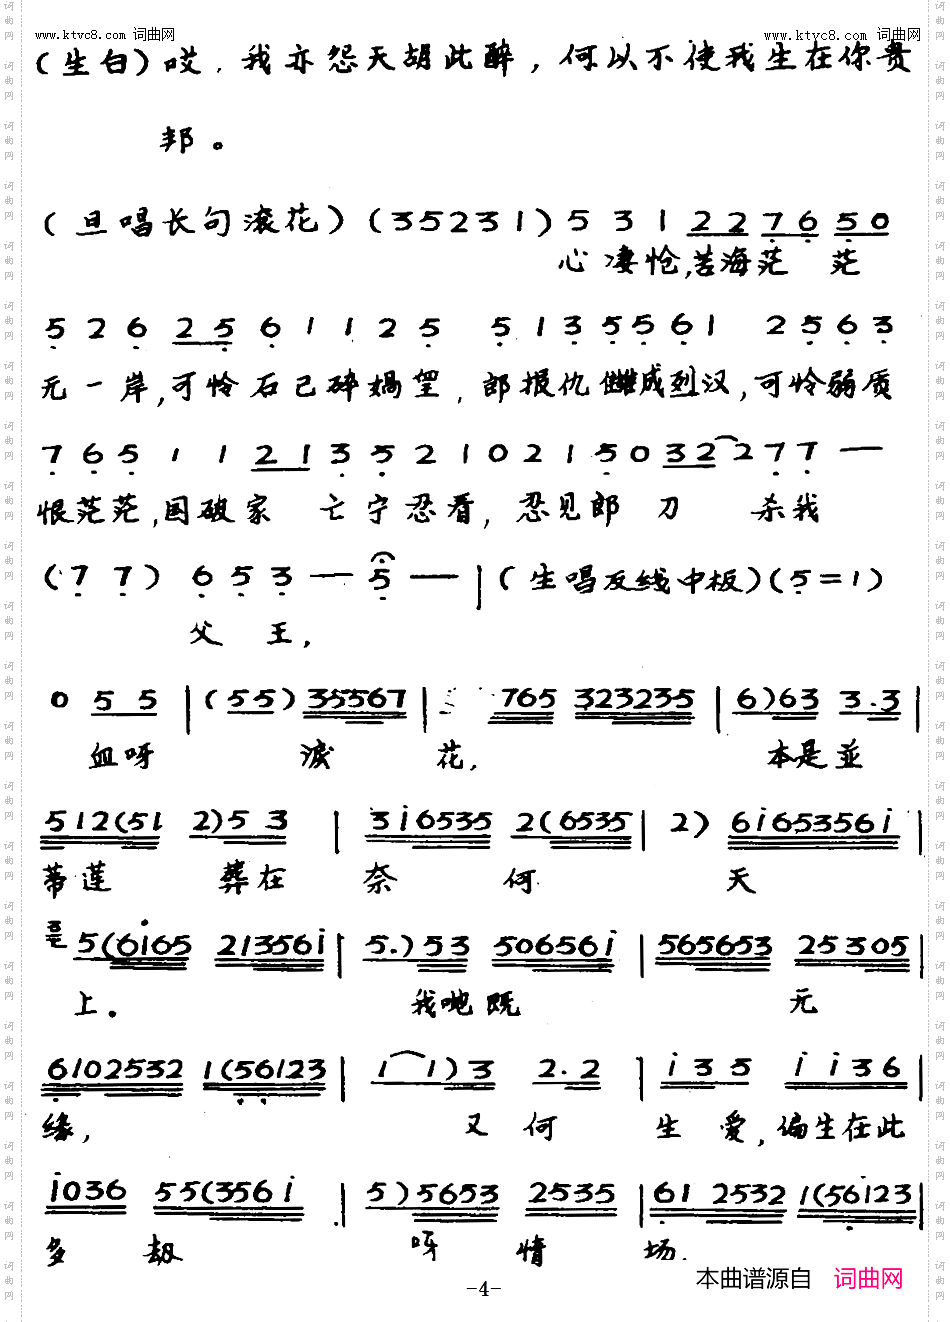 www.ktvc8.com 词曲网 www.ktvc8.com 词曲网
(生白)哎.我亦怨天胡此醉,何以不使我生在你贵
邦。
(旦唱长句滚花)(35231) 5 3 1 2 2 7 6 5 0
心凄怆,苦海茫 茫
5 2 6 2 5 6 1 1 2 5 5 1 3 5 5 6 1 2 5 6 3
无一岸,可怜石已碎 望,郎报仇 成烈汉,可怜弱质
7 6 5 1 1 2 1 3 5 2 1 0 2 1 5 0 3 2 2 7 7 —
恨茫茫,国破家 亡宁忍看,忍见郎 刀 杀我
(7 7) 6 5 3 — 5 — | (生唱反线中板)(5=1)
父 王,
0 5 5 | (5 5) 35567 | 765 323235 | 6)63 3.3 |
血呀 泪 花, 本是並
512(51 2)5 3 | 3i6535 2(6535 | 2) 6i65356i |
蒂莲 葬在 奈 何 天
5(6i65 21356i | 5.)53 50656i | 565653 25305 |
上。 我哋既 无
6102532 1(56123 | 1 1)3 2.2 | i 3 5 i i 3 6 |
缘, 又 何 生 爱,偏生在此
i036 55(356i | 5)5653 2535 | 61 2532 1(56123
多 劫 呀 情 场.
本曲谱源自 词曲网
-4-